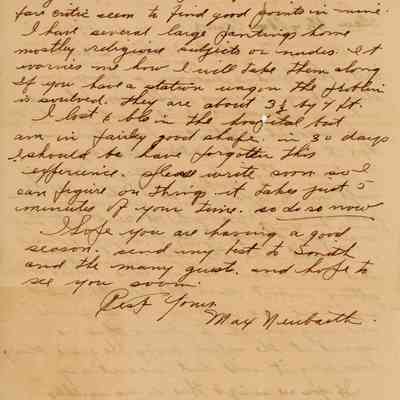 fare critic seem to find good points in mine.
I have several large paintings home
mostly religious subjects or nudes. It
worries me how I will take them along
If you have a station wagon the problem
is solved. they are about 3½ by 7 ft.
I lost 6 lbs in the hospital but
am in fairly good shape. in 30 days
I should be have forgotten this
experience. please write soon so I
can figure on things it takes just 5
minutes of your time. so do so now
I hope you are having a good
season. send my best to Smith
and the many guest. and hope to
see you soon.
Best Yours
Max Neubarth.